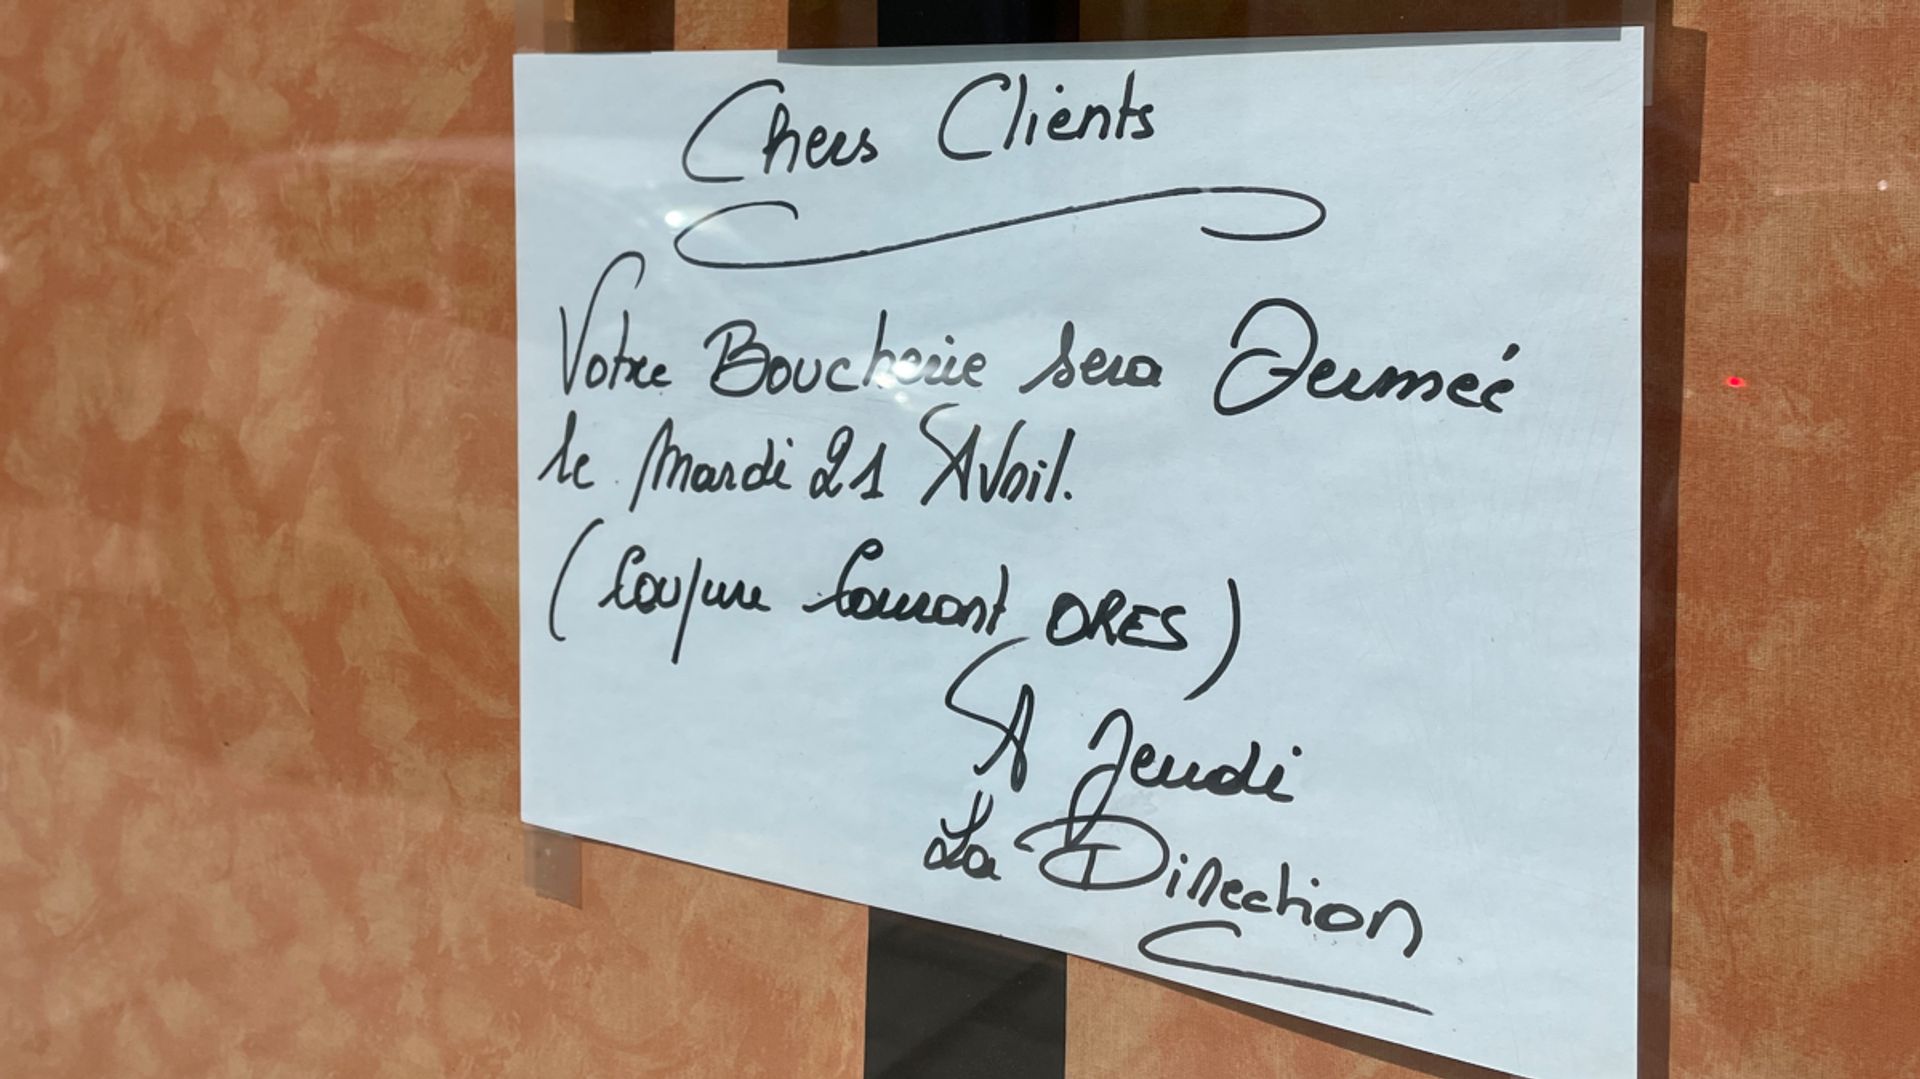 Chers Clients
Votre Boucherie sera Fermeé
le Mardi 21 Avril.
(Coupure Courant ORES)
A Jeudi
La Direction